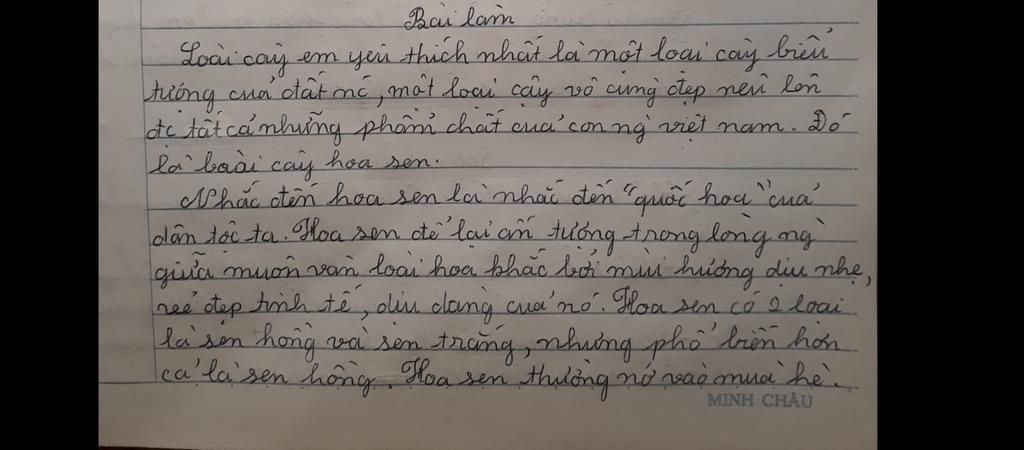 Bài làm
Loài cây em yêu thích nhất là một loại cây biểu
tượng của đất nc, một loại cây vô cùng đẹp nêu lên
đc tất cả những phẩm chất của con ng việt nam. Đó
là loài cây hoa sen.
Nhắc đến hoa sen là nhắc đến "quốc hoa" của
dân tộc ta. Hoa sen để lại ấn tượng trong lòng ng
giữa muôn vàn loài hoa khác bởi mùi hương dịu nhẹ,
vẻ đẹp tinh tế, dịu dàng của nó. Hoa sen có 2 loại
là sen hồng và sen trắng, nhưng phổ biến hơn
cả là sen hồng. Hoa sen thường nở vào mùa hè.
MINH CHÂU